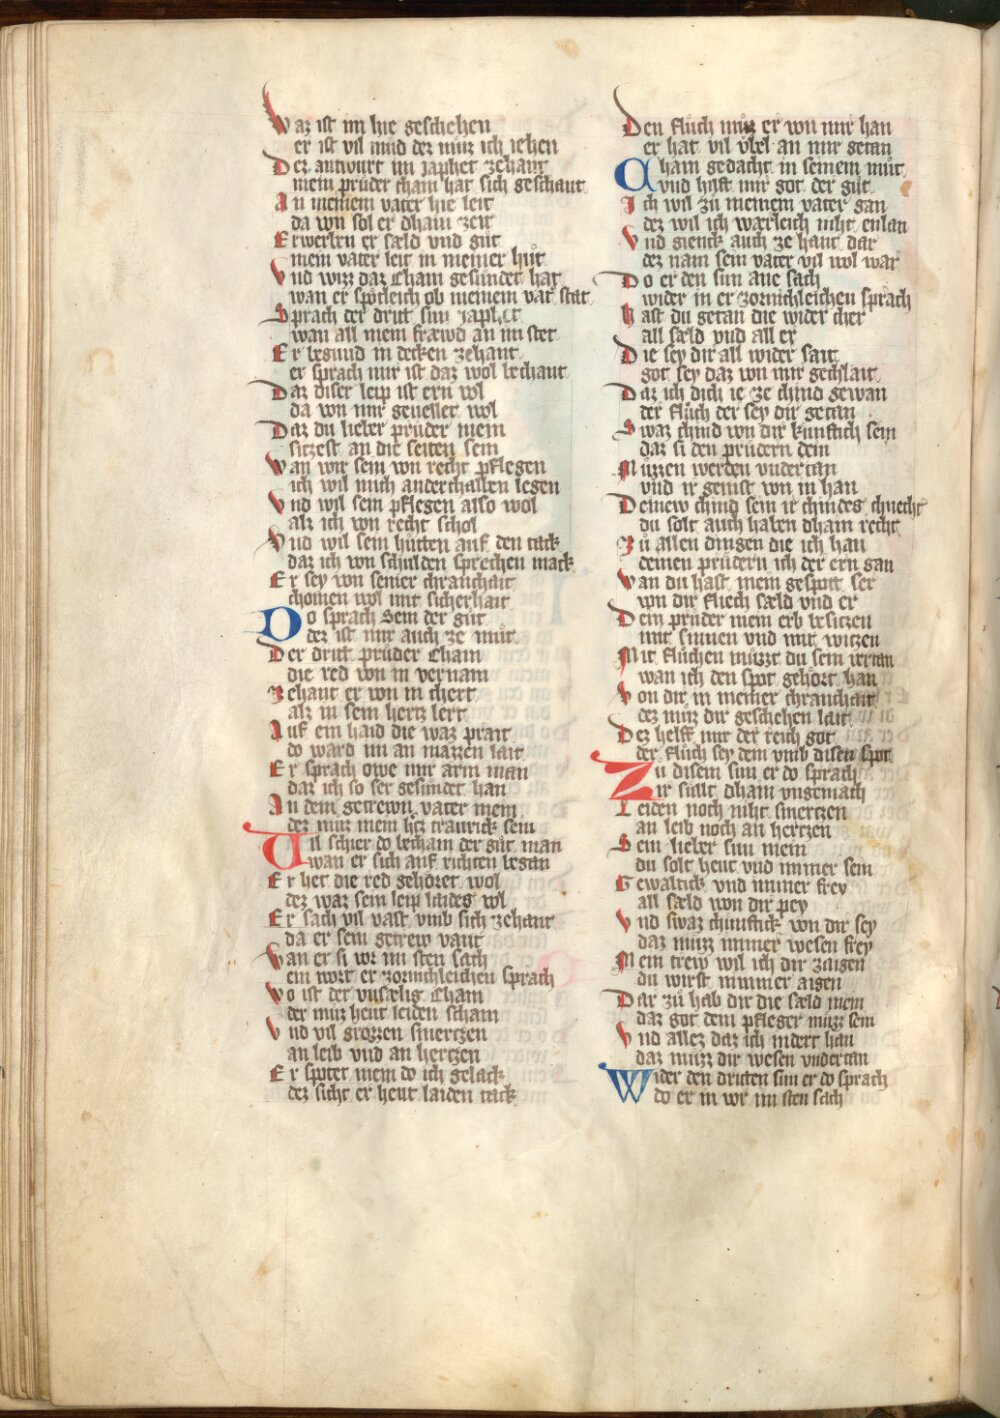 Waz ist im hie geschehen
er ist vil mud dez muz ich iehen
Der antwurt im Japhet zehant
mein průder Cham hat sich geschant
An meinem vater hie leit
da von sol er dhain zeit
Erwerben er sæld vnd gůt
mein vater leit in meiner hůt
Vnd wizz daz Cham gesundet hat
wan er spötleich ob meinem vat stat
Sprach der dritt sun Japhet
wan all mein fræwd an im stet
Er begund in decken zehant
er sprach mir ist daz wol bechant
Daz diser leip ist ern vol
da von mir geuellet wol
Daz du lieber průder mein
sitzest an die seiten sein
Wan wir sein von recht pflegen
ich wil mich anderthalben legen
Vnd wil sein pflegen also wol
alz ich von recht schol
Vnd wil sein hůtten auf den tack
daz ich von schulden sprechen mack
Er sey von seiner chranchait
chomen wol mit sicherhait
Do sprach Sem der gůt
dez ist mir auch ze můt
Der dritt průder Cham
die red von in vernam
Zehant er von in chert
alz in sein hertz lert
Auf ein haid die waz prait
do ward im an mazzen lait
Er sprach owe mir arm man
daz ich so ser gesundet han
An dem getrewn vater mein
dez muz mein hertz traurick sein
Vil schier do becham der gůt man
wan er sich auf richten began
Er het die red gehöret wol
dez waz sein leip laides vol
Er sach vil vast vmb sich zehant
da er sein getrew vant
Wan er si vor im sten sach
ein wort er zornichleichen sprach
Wo ist der vnsælig Cham
der muz heut leiden scham
Vnd vil grozzen smertzen
an leib vnd an hertzen
Er spotet mein do ich gelack
dez sicht er heut laiden tack
Den flůch můz er von mir han
er hat vil vbel an mir getan
Cham gedacht in seinem můt
vnd hilft mir got der gůt
Ich wil zů meinem vater gan
dez wil ich wærleich niht enlan
Vnd gienck auch ze hant dar
dez nam sein vater vil wol war
Do er den sun ane sach
wider in er zornichleichen sprach
Hast du getan die wider cher
all sæld vnd all er
Die sey dir all wider sait
got sey daz von mir gechlait
Daz ich dich ie ze chind gewan
der flůch der sey dir getan
Swaz chind von dir kunftich sein
daz si den prüdern dein
Müzzen werden vndertan
vnd ir genist von in han
Deinew chind sein ir chindes chnecht
du solt auch haben dhain recht
Zů allen dingen die ich han
deinen prüdern ich der ern gan
Wan du hast mein gespott ser
von dir fliech sæld vnd er
Dein prüder mein erb besitzen
mit sinnen vnd mit witzen
Mit flůchen můzzt du sein irretan
wan ich den spot gehört han
Von dir in meiner chranchait
dez můz dir geschehen lait
Dez helff mir der reich got
der flůch sey dem vmb disen spot
Zu disem sun er do sprach
dir süllt dhain vngemach
Leiden noch niht smertzen
an leib noch an hertzen
Sem lieber sun mein
du solt heut vnd immer sein
Gewaltick vnd immer frey
all sæld von dir pey
Vnd swaz chunftick von dir sey
daz můzz immer wesen frey
Mein trew wil ich dir zaigen
du wirst nimmer aigen
Dar zů hab dir die sæld mein
daz got dein pfleger můzz sein
Vnd allez daz ich indert han
daz můzz dir wesen vndertan
Wider den dritten sun er do sprach
do er in vor im sten sach